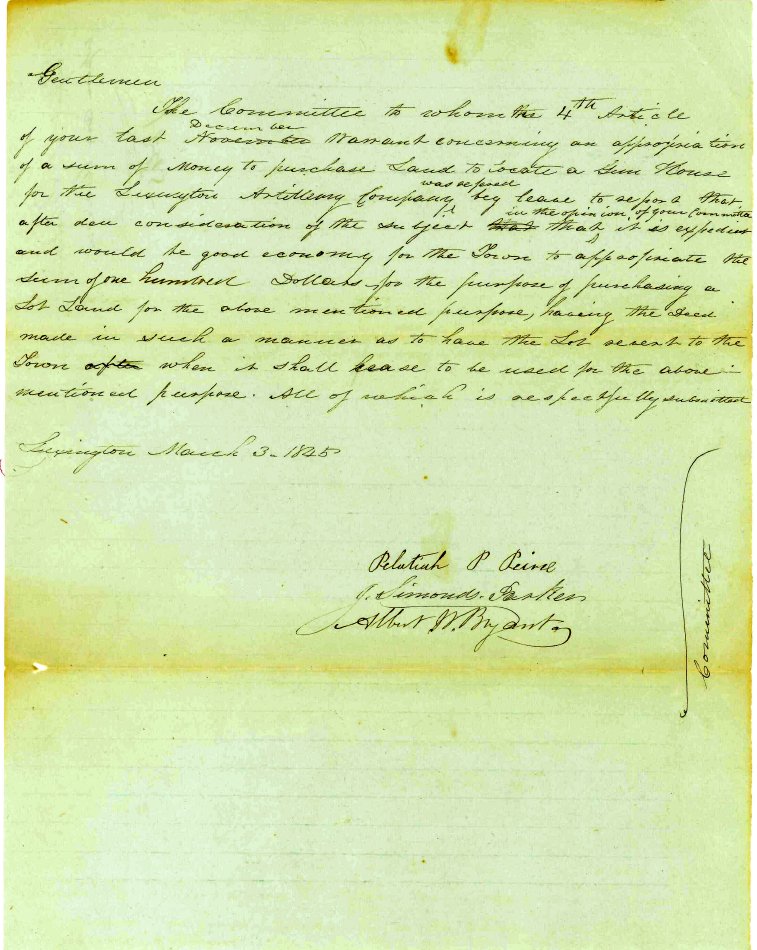 Gentlemen
The Committee to whom the 4th Article
December
of your last November Warrant concerning an appropriation
of a sum of Money to purchase Land to locate a Gun House
was refered
for the Lexington Artillery Company beg leave to report that
in the opinion of your Committee
after due consideration of the subject that that it is expedient
and would be good economy for the Town to appropriate the
sum of one hundred Dollars for the purpose of purchasing a
Lot Land for the above mentioned purpose, having the Deed
made in such a manner as to have the Lot revert to the
Town after when it shall cease to be used for the above
mentioned purpose. All of which is respectfully submitted
Lexington March 3- 1845
Pelatiah P Peirce
J. Simonds. Parker
Albert W. Bryant
Committee